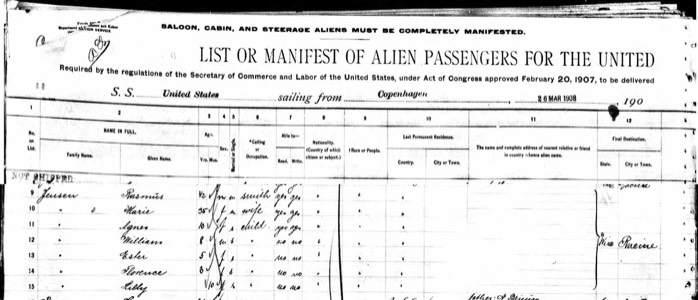 SALOON, CABIN, AND STEERAGE ALIENS MUST BE COMPLETELY MANIFESTED.
LIST OR MANIFEST OF ALIEN PASSENGERS FOR THE UNITED
Required by the regulations of the Secretary of Commerce and Labor of the United States, under Act of Congress approved February 20, 1907, to be delivered
S. S. United States sailing from Copenhagen 26 MAR 1908 , 190
1 2 3 4 5 6 7 8 9 10 11 12
No. on List. NAME IN FULL. Family Name. Given Name. Age. Yrs. Mos. Sex. Married or Single. Calling or Occupation. Able to— Read. Write. Nationality. (Country of which citizen or subject.) Race or People. Last Permanent Residence. Country. City or Town. The name and complete address of nearest relative or friend in country whence alien came. Final Destination. State. City or Town.
NOT SHIPPED
9 Jensen Rasmus m smith yes yes "
10 " Marie 35 f " wife yes yes "
11 " Agnes 10 f child yes yes "
12 " William 8 " no no "
13 " Ester 5 f " no no " Wis Racine
14 " Florence 3 " no no "
15 " Lilly " no no "